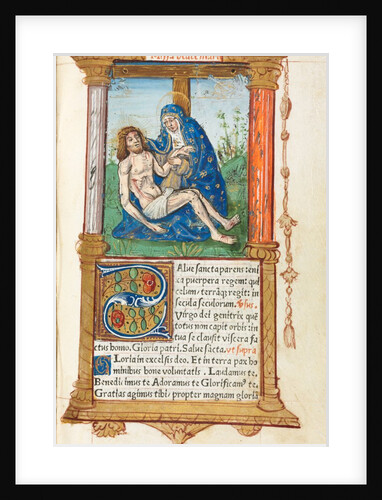 Missa beate marie
Salue sancta parens: eni
xa puerpera regem: qui
celum, terrāq; regit: in
secula seculorum. v̄sus.
Virgo dei genitrix quē
totus non capit orbis: in
tua se clausit viscera fa
ctus homo. Gloria patri. Salue sācta. vt supra
Gloria in excelsis deo. Et in terra pax ho
minibus bone voluntatis. Laudamus te.
Benedicimus te Adoramus te Glorificam⁹ te.
Gratias agimus tibi, propter magnam gloriā